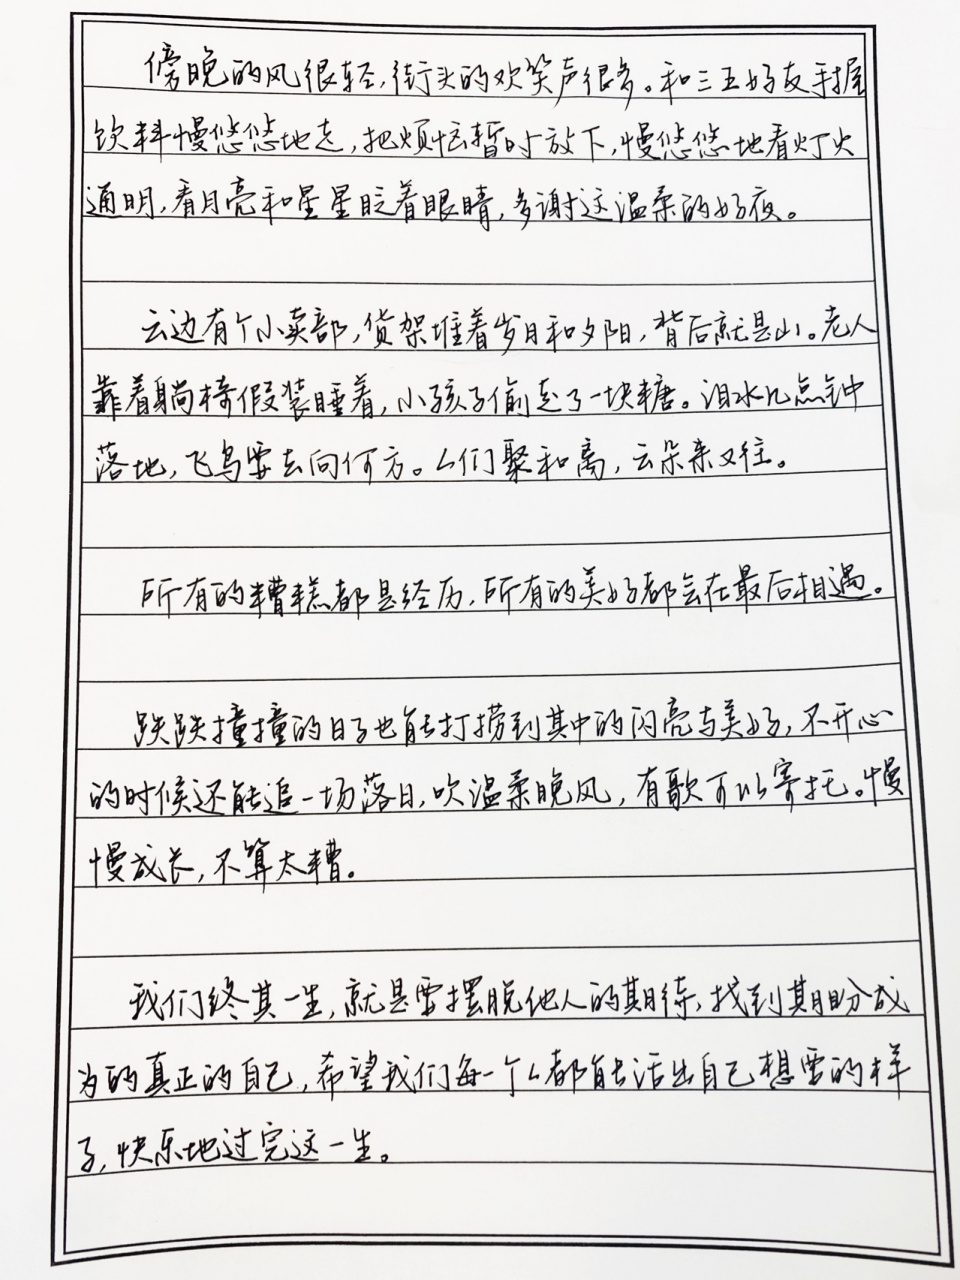 傍晚的风很轻，街头的欢笑声很多。和三五好友手握
饮料慢悠悠地走，把烦恼暂时放下，慢悠悠地看灯火
通明，看月亮和星星眨着眼睛，多谢这温柔的好夜。
云边有个小卖部，货架堆着岁月和夕阳，背后就是山。老人
靠着躺椅假装睡着，小孩子偷走了一块糖。泪水几点钟
落地，飞鸟要去向何方。人们聚和离，云朵来又往。
所有的糟糕都是经历，所有的美好都会在最后相遇。
跌跌撞撞的日子也能打捞到其中的闪亮与美好，不开心
的时候还能追一场落日，吹温柔晚风，有歌可以寄托。慢
慢成长，不算太糟。
我们终其一生，就是要摆脱他人的期待，找到期盼成
为的真正的自己，希望我们每一个人都能活出自己想要的样
子，快乐地过完这一生。